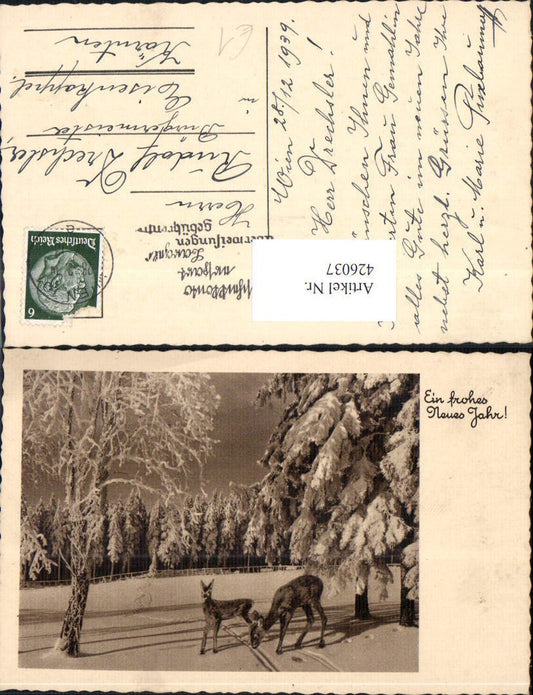 Wien 28./12 1939.
Herr Drechsler!
wünschen Ihnen und
Frau Gemahlin
alles Gute im neuen Jahre
nebst herzl. Grüssen Ihre
Karl u. Marie
Herrn
Rudolf Drechsler,
Bürgermeister
in Eisenkappel,
Kärnten
Deutsches Reich
6
Überweisungen
gebührenfrei
Artikel Nr.
426037
Ein frohes
Neues Jahr!